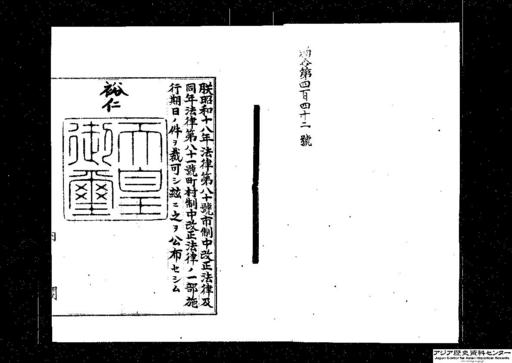 勅令第四百四十二號
朕昭和十八年法律第八十號市制中改正法律及
同年法律第八十一號町村制中改正法律ノ一部施
行期日ノ件ヲ裁可シ玆ニ之ヲ公布セシム
裕仁
天皇
御璽
内
閣
アジア歴史資料センター
Japan Center for Asian Historical Records